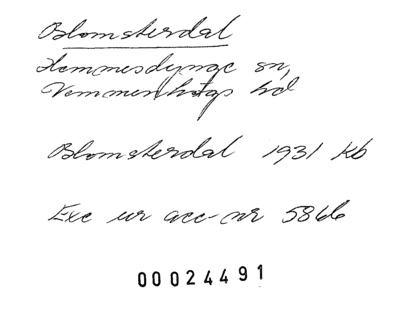 Blomsterdal
Hemmesdynge sn,
Vemmenhögs hd
Blomsterdal 1931 Kb
Exc ur acc-nr 5866
00024491